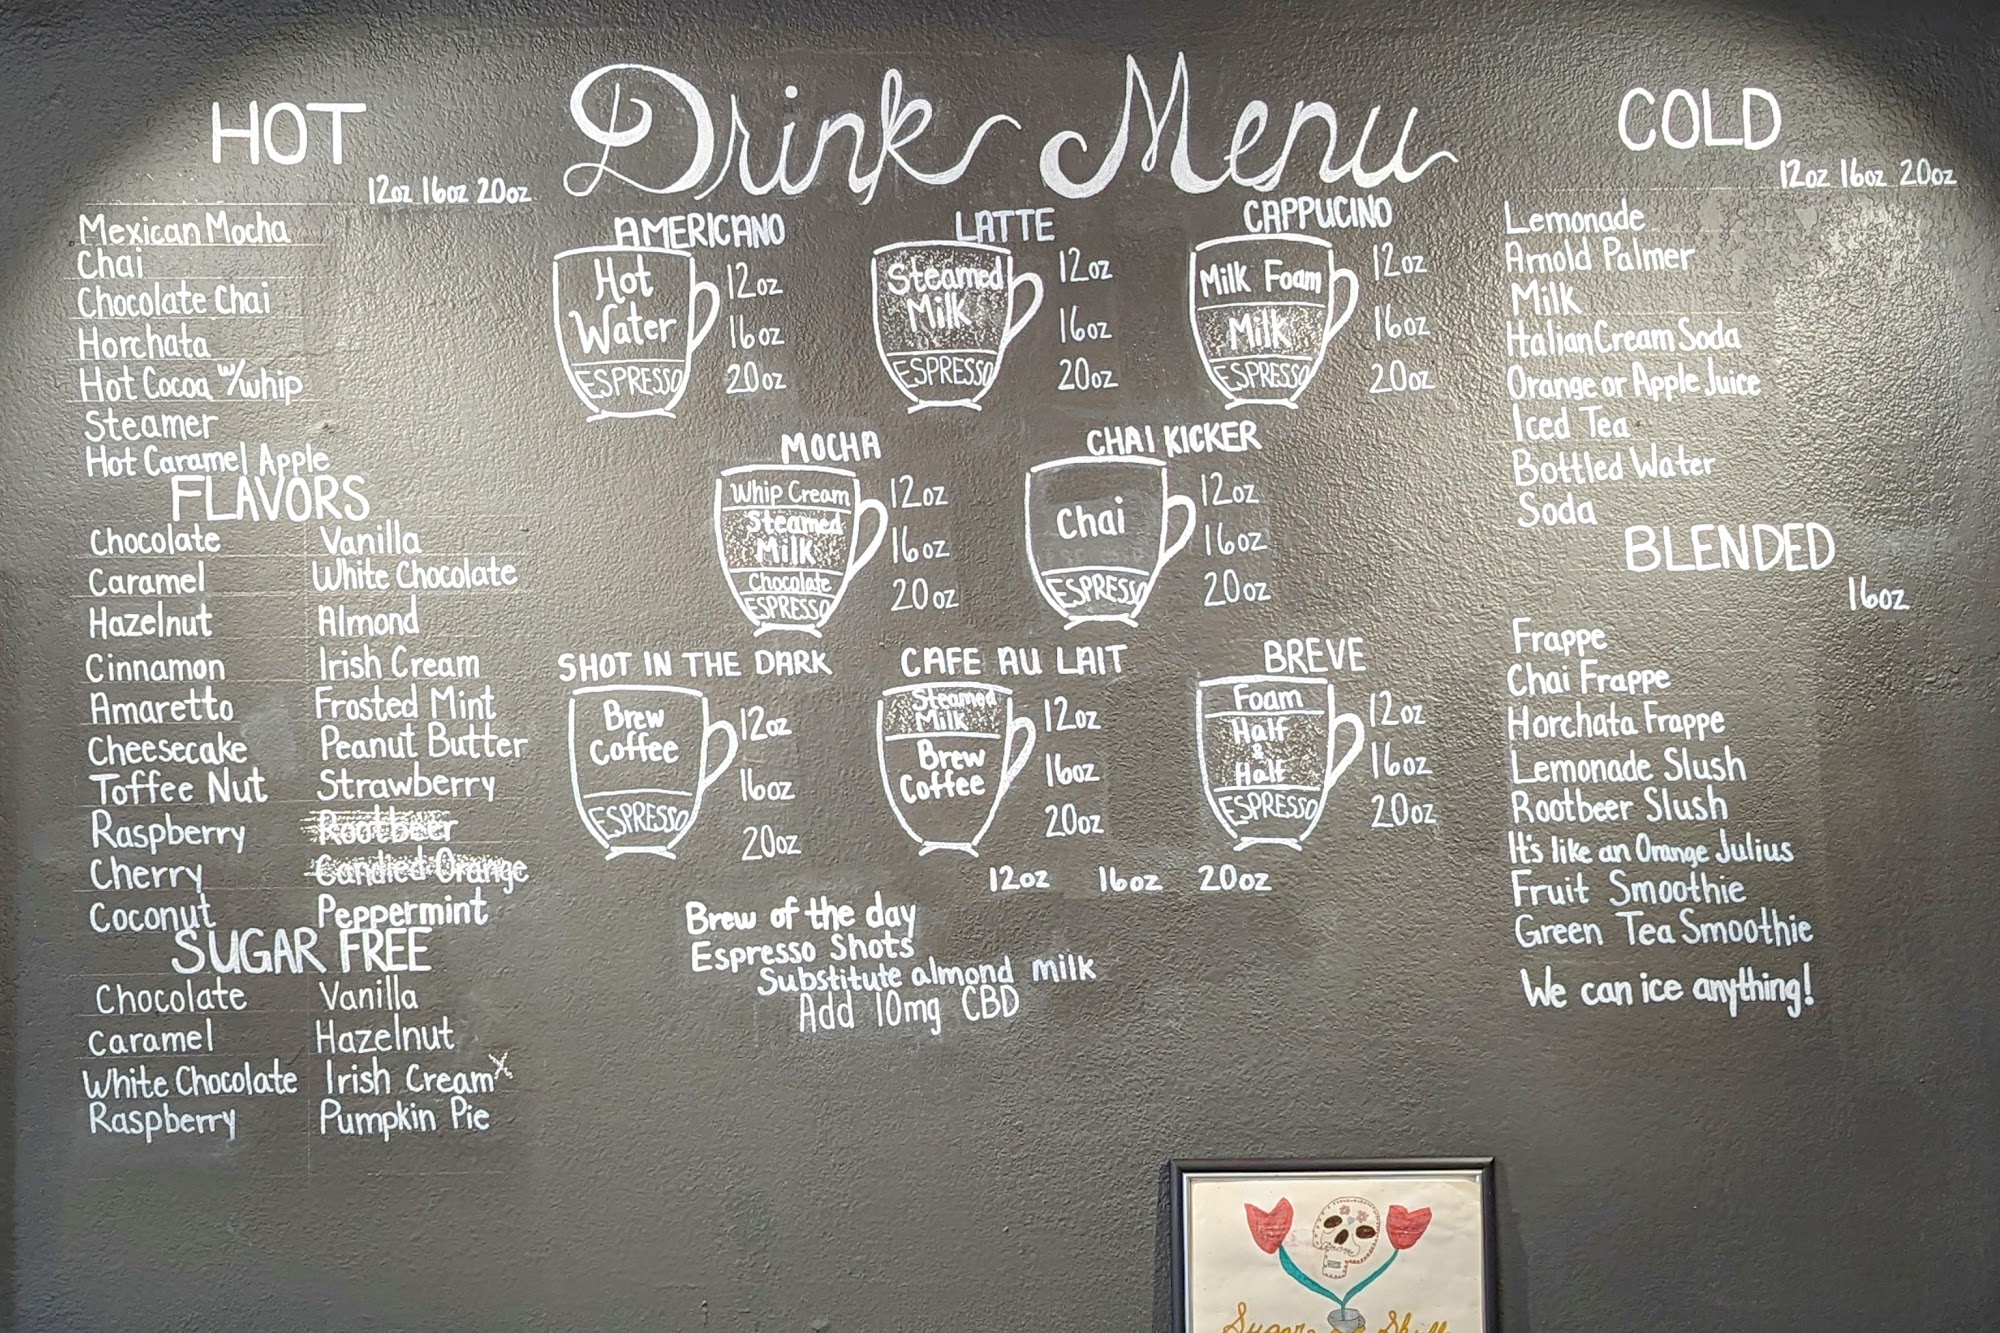 Drink Menu
HOT
12oz 16oz 20oz
Mexican Mocha
Chai
Chocolate Chai
Horchata
Hot Cocoa w/whip
Steamer
Hot Caramel Apple
FLAVORS
Chocolate Vanilla
Caramel White Chocolate
Hazelnut Almond
Cinnamon Irish Cream
Amaretto Frosted Mint
Cheesecake Peanut Butter
Toffee Nut Strawberry
Raspberry Rootbeer
Cherry Candied Orange
Coconut Peppermint
SUGAR FREE
Chocolate Vanilla
Caramel Hazelnut
White Chocolate Irish Cream X
Raspberry Pumpkin Pie
AMERICANO
Hot
Water
ESPRESSO
12oz
16oz
20oz
LATTE
Steamed
Milk
ESPRESSO
12oz
16oz
20oz
CAPPUCINO
Milk Foam
Milk
ESPRESSO
12oz
16oz
20oz
MOCHA
Whip Cream
Steamed
Milk
Chocolate
ESPRESSO
12oz
16oz
20oz
CHAI KICKER
Chai
ESPRESSO
12oz
16oz
20oz
SHOT IN THE DARK
Brew
Coffee
ESPRESSO
12oz
16oz
20oz
CAFE AU LAIT
Steamed
Milk
Brew
Coffee
12oz
16oz
20oz
BREVE
Foam
Half
&
Half
ESPRESSO
12oz
16oz
20oz
12oz 16oz 20oz
Brew of the day
Espresso Shots
Substitute almond milk
Add 10mg CBD
COLD
12oz 16oz 20oz
Lemonade
Arnold Palmer
Milk
Italian Cream Soda
Orange or Apple Juice
Iced Tea
Bottled Water
Soda
BLENDED
16oz
Frappe
Chai Frappe
Horchata Frappe
Lemonade Slush
Rootbeer Slush
It's like an Orange Julius
Fruit Smoothie
Green Tea Smoothie
We can ice anything!